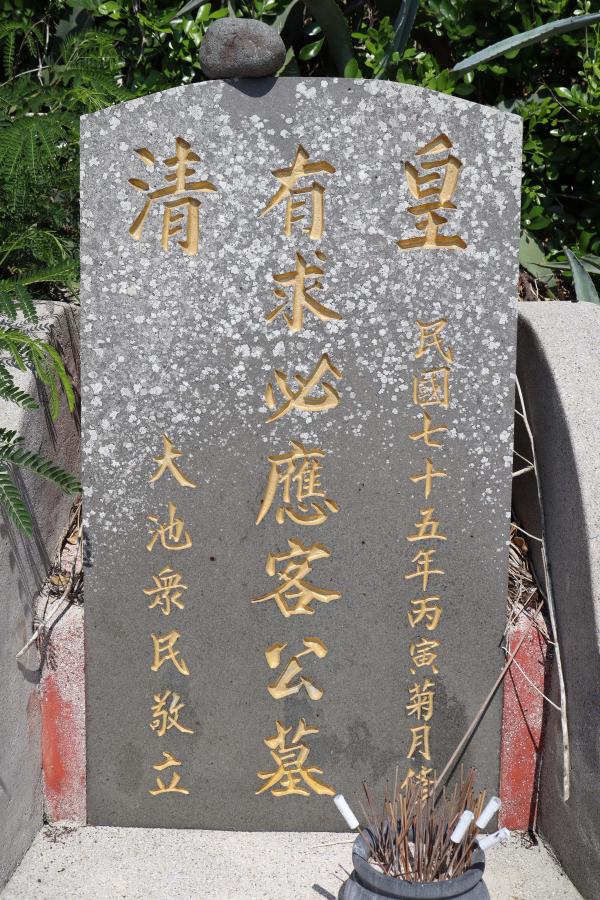 皇
清
民國七十五年丙寅菊月修
有求必應客公墓
大池眾民敬立